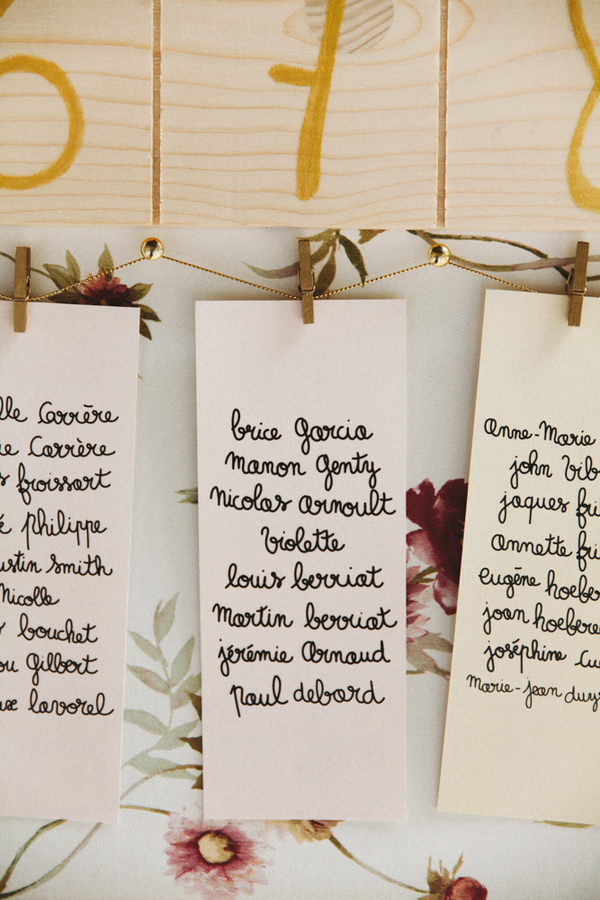 6 7 8
lle Carrère
ie Carrère
s froissart
é philippe
ustin smith
Nicolle
bouchet
ou Gilbert
ux lavorel
brice Garcia
Manon Genty
Nicolas arnoult
Violette
louis berriat
Martin berriat
jérémie Arnaud
paul debord
Anne-Marie
john vib
jaques fri
Annette fri
eugène hoeber
joan hoebere
joséphine Cu
Marie-jean duy